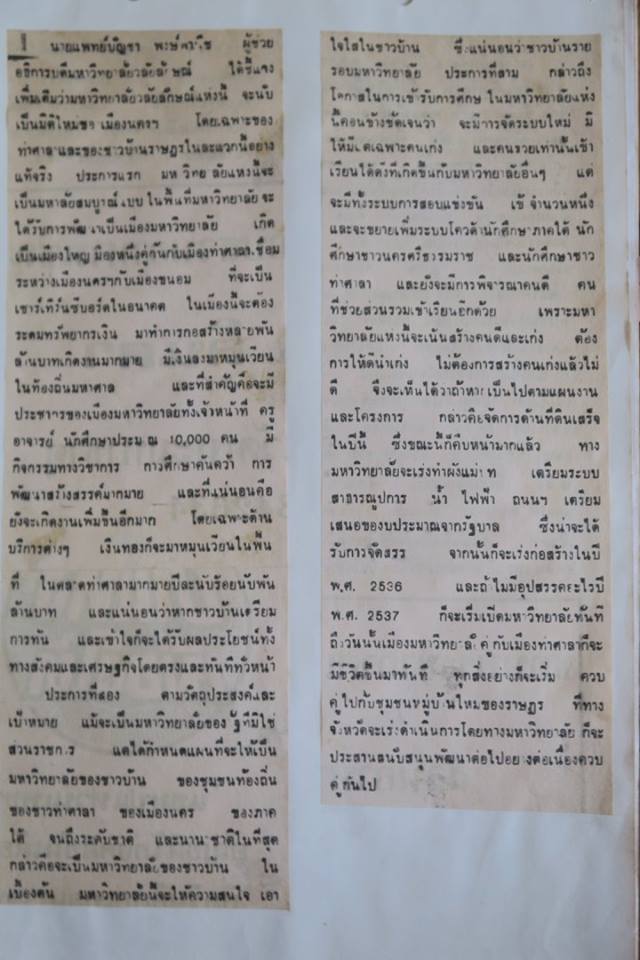 นายแพทย์บัญชา พงษ์พานิช ผู้ช่วย
อธิการบดีมหาวิทยาลัยวลัยลักษณ์ ได้ชี้แจง
เพิ่มเติมว่ามหาวิทยาลัยวลัยลักษณ์แห่งนี้ จะนับ
เป็นมิติใหม่ของเมืองนครฯ โดยเฉพาะของ
ท่าศาลาและของชาวบ้านราษฎรในละแวกนี้อย่าง
แท้จริง ประการแรก มหาวิทยาลัยแห่งนี้จะ
เป็นมหาลัยสมบูรณ์แบบ ในพื้นที่มหาวิทยาลัย จะ
ได้รับการพัฒนาเป็นเมืองมหาวิทยาลัย เกิด
เป็นเมืองใหญ่ เมืองหนึ่งคู่กันกับเมืองท่าศาลา เชื่อม
ระหว่างเมืองนครฯกับเมืองขนอม ที่จะเป็น
เซาร์เทิร์นซีบอร์ดในอนาคต ในเมืองนี้จะต้อง
ระดมทรัพยากรเงิน มาทำการก่อสร้างหลายพัน
ล้านบาทเกิดงานมากมาย มีเงินลงมาหมุนเวียน
ในท้องถิ่นมหาศาล และที่สำคัญคือจะมี
ประชาการของเมืองมหาวิทยาลัยทั้งเจ้าหน้าที่ ครู
อาจารย์ นักศึกษาประมาณ 10,000 คน มี
กิจกรรมทางวิชาการ การศึกษาค้นคว้า การ
พัฒนาสร้างสรรค์มากมาย และที่แน่นอนคือ
ยังจะเกิดงานเพิ่มขึ้นอีกมาก โดยเฉพาะด้าน
บริการต่างๆ เงินทองก็จะมาหมุนเวียนในพื้น
ที่ ในตลาดท่าศาลามากมายปีละนับร้อยนับพัน
ล้านบาท และแน่นอนว่าหากชาวบ้านเตรียม
การทัน และเข้าใจก็จะได้รับผลประโยชน์ทั้ง
ทางสังคมและเศรษฐกิจโดยตรงและทันทีทั่วหน้า
ประการที่สอง ตามวัตถุประสงค์และ
เป้าหมาย แม้จะเป็นมหาวิทยาลัยของรัฐที่มิใช่
ส่วนราชการ แต่ได้กำหนดแผนที่จะให้เป็น
มหาวิทยาลัยของชาวบ้าน ของชุมชนท้องถิ่น
ของชาวท่าศาลา ของเมืองนคร ของภาค
ใต้ จนถึงระดับชาติ และนานาชาติในที่สุด
กล่าวคือจะเป็นมหาวิทยาลัยของชาวบ้าน ใน
เบื้องต้น มหาวิทยาลัยนี้จะให้ความสนใจ เอา
ใจใส่ในชาวบ้าน ซึ่งแน่นอนว่าชาวบ้านราย
รอบมหาวิทยาลัย ประการที่สาม กล่าวถึง
โอกาสในการเข้ารับการศึกษาในมหาวิทยาลัยแห่ง
นี้ค่อนข้างชัดเจนว่า จะมีการจัดระบบใหม่ มิ
ให้มีแต่เฉพาะคนเก่ง และคนรวยเท่านั้นเข้า
เรียนได้ดังที่เกิดขึ้นกับมหาวิทยาลัยอื่นๆ แต่
จะมีทั้งระบบการสอบแข่งขัน เข้าจำนวนหนึ่ง
และจะขยายเพิ่มระบบโควต้านักศึกษาภาคใต้ นัก
ศึกษาชาวนครศรีธรรมราช และนักศึกษาชาว
ท่าศาลา และยังจะมีการพิจารณาคนดี คน
ที่ช่วยส่วนรวมเข้าเรียนอีกด้วย เพราะมหา
วิทยาลัยแห่งนี้จะเน้นสร้างคนดีและเก่ง ต้อง
การให้ดีนำเก่ง ไม่ต้องการสร้างคนเก่งแล้วไม่
ดี จึงจะเห็นได้ว่าถ้าหากเป็นไปตามแผนงาน
และโครงการ กล่าวคือจัดการด้านที่ดินเสร็จ
ในปีนี้ ซึ่งขณะนี้ก็คืบหน้ามากแล้ว ทาง
มหาวิทยาลัยจะเร่งทำผังแม่บท เตรียมระบบ
สาธารณูปการ น้ำ ไฟฟ้า ถนนฯ เตรียม
เสนอของบประมาณจากรัฐบาล ซึ่งน่าจะได้
รับการจัดสรร จากนั้นก็จะเร่งก่อสร้างในปี
พ.ศ. 2536 และถ้าไม่มีอุปสรรคอะไรปี
พ.ศ. 2537 ก็จะเริ่มเปิดมหาวิทยาลัยทันที
ถึงวันนั้นเมืองมหาวิทยาลัยคู่กับเมืองท่าศาลาก็จะ
มีชีวิตขึ้นมาทันที ทุกสิ่งอย่างก็จะเริ่ม ควบ
คู่ไปกับชุมชนหมู่บ้านใหม่ของราษฎร ที่ทาง
จังหวัดจะเร่งดำเนินการโดยทางมหาวิทยาลัย ก็จะ
ประสานสนับสนุนพัฒนาต่อไปอย่างต่อเนื่องควบ
คู่กันไป